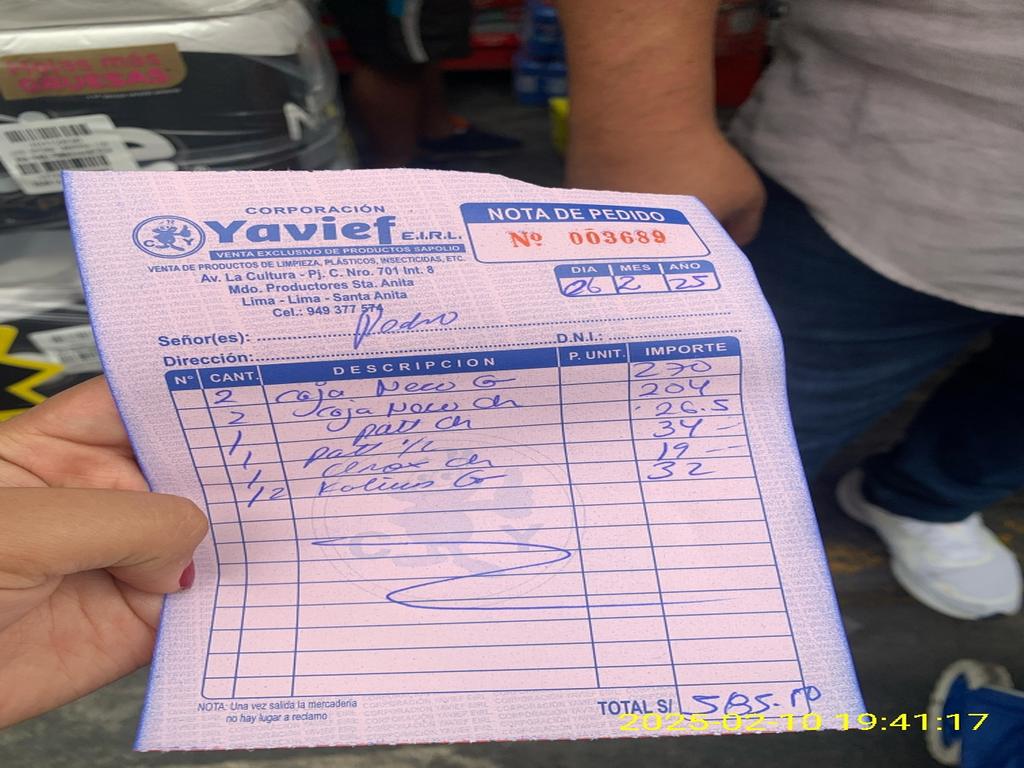 Hojas más
GRUESAS
CORPORACIÓN
Yavief E.I.R.L.
VENTA EXCLUSIVO DE PRODUCTOS SAPOLIO
VENTA DE PRODUCTOS DE LIMPIEZA, PLÁSTICOS, INSECTICIDAS, ETC.
Av. La Cultura - Pj. C. Nro. 701 Int. 8
Mdo. Productores Sta. Anita
Lima - Lima - Santa Anita
Cel.: 949 377 574
NOTA DE PEDIDO
Nº 003689
DIA MES AÑO
06 2 25
Señor(es): Pedro
Dirección: D.N.I.:
Nº CANT. DESCRIPCION P. UNIT. IMPORTE
2 Caja Neco G 270
2 Caja Neco Ch 204
1 Patt Ch 26.5
1 Patt 1/2 34 -
1 Clrox Ch 19 -
12 Kolinos G 32
CRY
NOTA: Una vez salida la mercadería
no hay lugar a reclamo
TOTAL S/ 585.50
2025-02-10 19:41:17